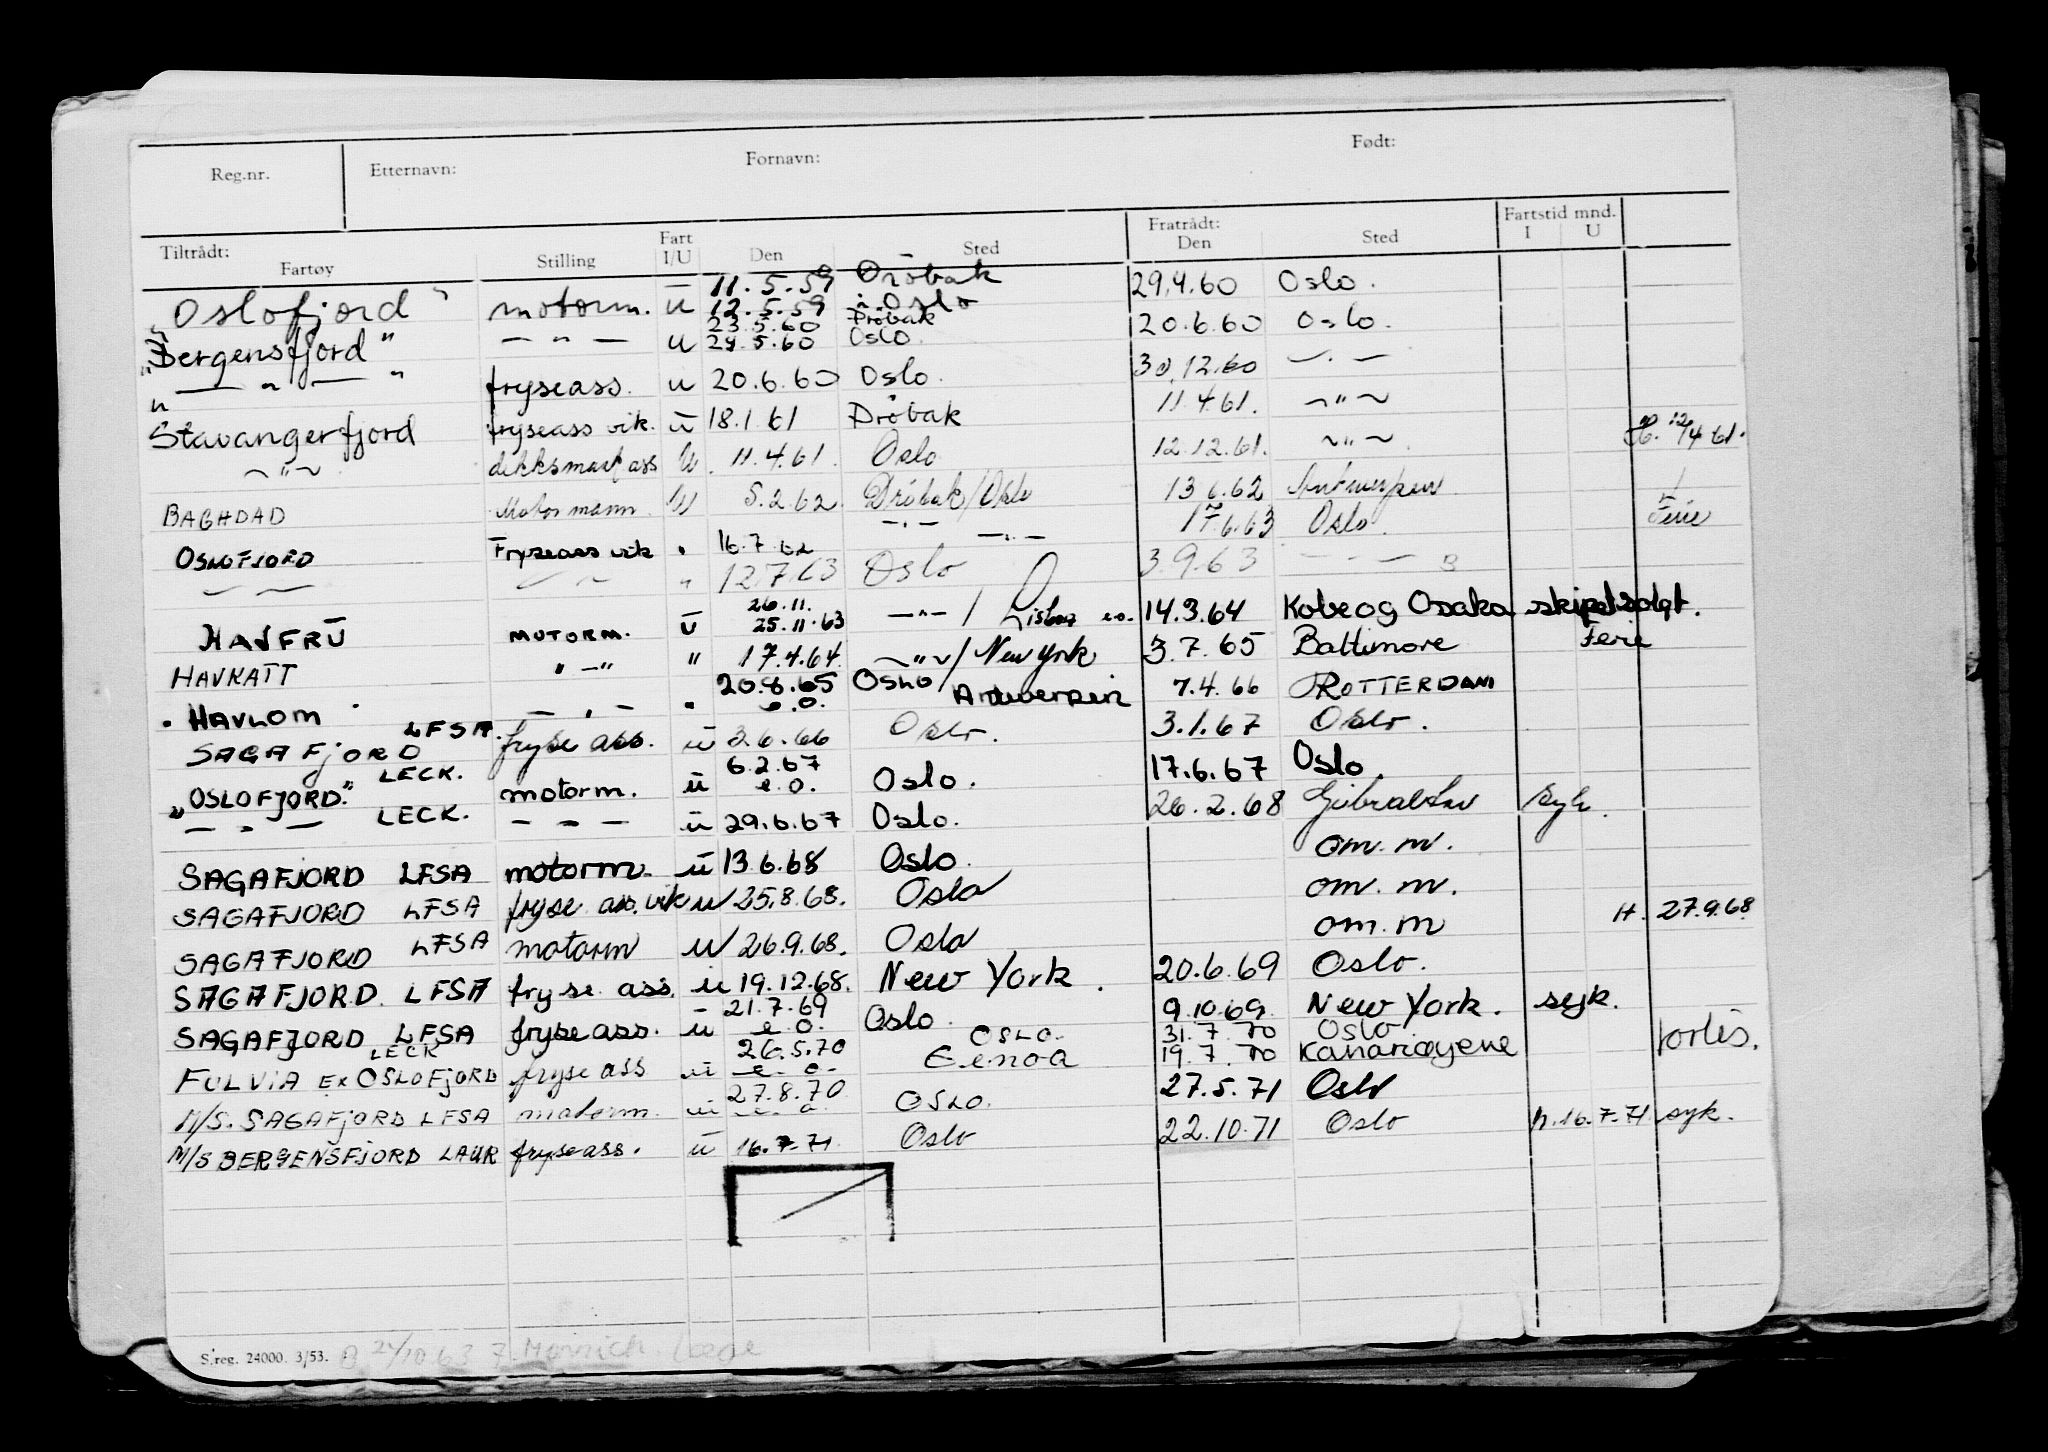 Reg.nr. Etternavn: Fornavn: Født:
Tiltrådt: Fartøy Stilling Fart I/U Den Sted Fratrådt: Den Sted Fartstid mnd. I U
Oslofjord" motorm. u 11.5.59 Drøbak 12.5.59 Oslo 29.4.60 Oslo.
"Bergensfjord" — " — u 23.5.60 Drøbak 24.5.60 Oslo. 20.6.60 Oslo.
— " — " fryseass. u 20.6.60 Oslo. 30.12.60 — " —
"Stavangerfjord fryseass vik. u 18.1.61 Drøbak 11.4.61. — " —
— " — ass U. 11.4.61. Oslo 12.12.61. — " — 12/4 61.
BAGHDAD Motormann U 5.2.62. Drøbak/Oslo 13 6.62 Antwerpen
OSLOFJORD Fryseass vik " 16.7.62 — " — 17.6.63 Oslo. Ferie
— — — — " 12.7.63 Oslo 3.9.63 — — —
HAVFRU MOTORM. U 26.11. 25.11.63 — " — / Lisboa e.o. 14.3.64 Kobe og Osaka skipet solgt.
HAVKATT " — " " 17.4.64. — " — / New York 3.7.65 Baltimore Ferie
" HAVLOM " — " — " 20.8.65 e.o. OSLO/Antwerpen 7.4.66 ROTTERDAM
SAGAFJORD LFSA. fryse ass. u 3.6.66 Oslo. 3.1.67 Oslo.
"OSLOFJORD." LECK. motorm. u 6.2.67 e.o. Oslo. 17.6.67 Oslo.
— " — LECK. — " — u 29.6.67 Oslo. 26.2.68 Gibraltar syk.
SAGAFJORD LFSA motorm. u 13.6.68 Oslo. om.m.
SAGAFJORD LFSA fryse ass. vik u 25.8.68. Oslo om.m.
SAGAFJORD LFSA motorm u 26.9.68. Oslo om.m H. 27.9.68
SAGAFJORD. LFSA fryse ass. u 19.12.68. New York. 20.6.69 Oslo.
SAGAFJORD LFSA fryseass. u 21.7.69 e.o. Oslo. 9.10.69. New York. syk.
FULVIA Ex OSLOFJORD LECK fryse ass u 26.5.70 e.o. OSLO. Genoa 31.7.70 Oslo 19.7.70 Kanariøyene forlis.
M/S. SAGAFJORD LFSA motorm. u 27.8.70 e.o. OSLO. 27.5.71 Oslo
M/S BERGENSFJORD LAUR fryseass. u 16.7.71 Oslo 22.10.71 Oslo h.16.7.71 syk.
S.reg. 24000. 3/53.